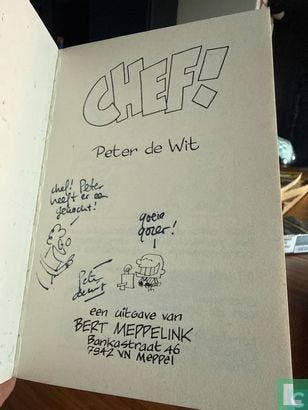 CHEF!
Peter de Wit
chef! Peter
heeft er een
gekocht!
goeie
gozer!
Peter
de Wit
een uitgave van
BERT MEPPELINK
Bankastraat 46
7942 VN Meppel
catawiki